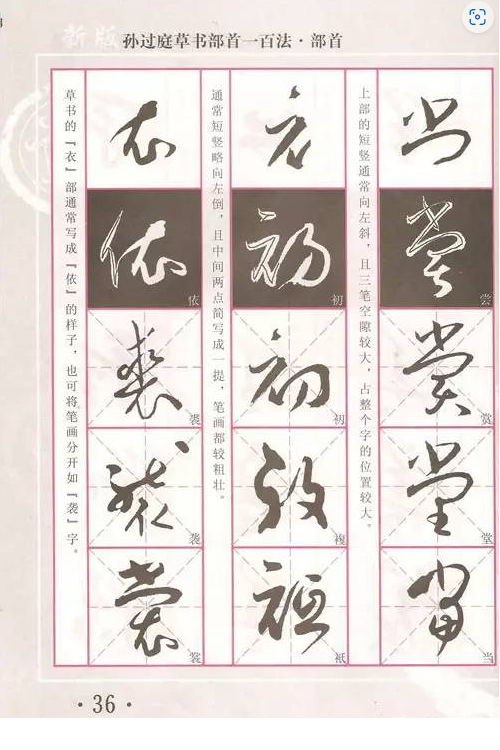 新版 孙过庭草书部首一百法·部首
上部的短竖通常向左斜，且三笔空隙较大，占整个字的位置较大。
尝
赏
堂
当
通常短竖略向左倒，且中间两点简写成一提，笔画都较粗壮。
初
初
草书的『衣』部通常写成『依』的样子，也可将笔画分开如『袭』字。
依
裘
袭
·36·